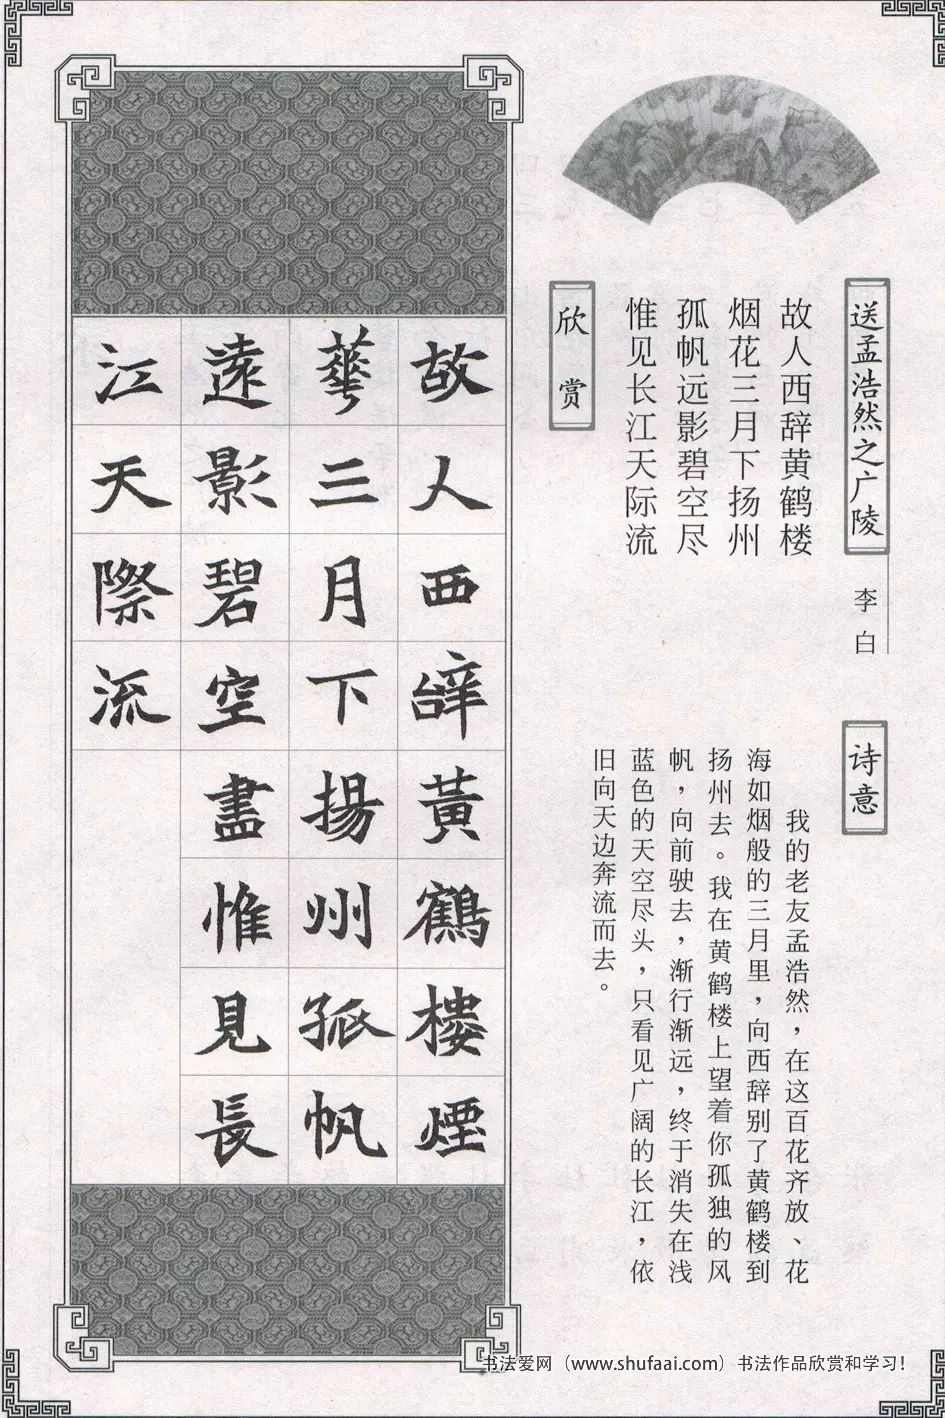 送孟浩然之广陵
李白
故人西辞黄鹤楼
烟花三月下扬州
孤帆远影碧空尽
惟见长江天际流
诗意
我的老友孟浩然，在这百花齐放、花
海如烟般的三月里，向西辞别了黄鹤楼到
扬州去。我在黄鹤楼上望着你孤独的风
帆，向前驶去，渐行渐远，终于消失在浅
蓝色的天空尽头，只看见广阔的长江，依
旧向天边奔流而去。
欣赏
故人西辭黃鶴樓煙
華三月下揚州孤帆
遠影碧空盡惟見長
江天際流
书法爱网（www.shufaai.com）书法作品欣赏和学习！